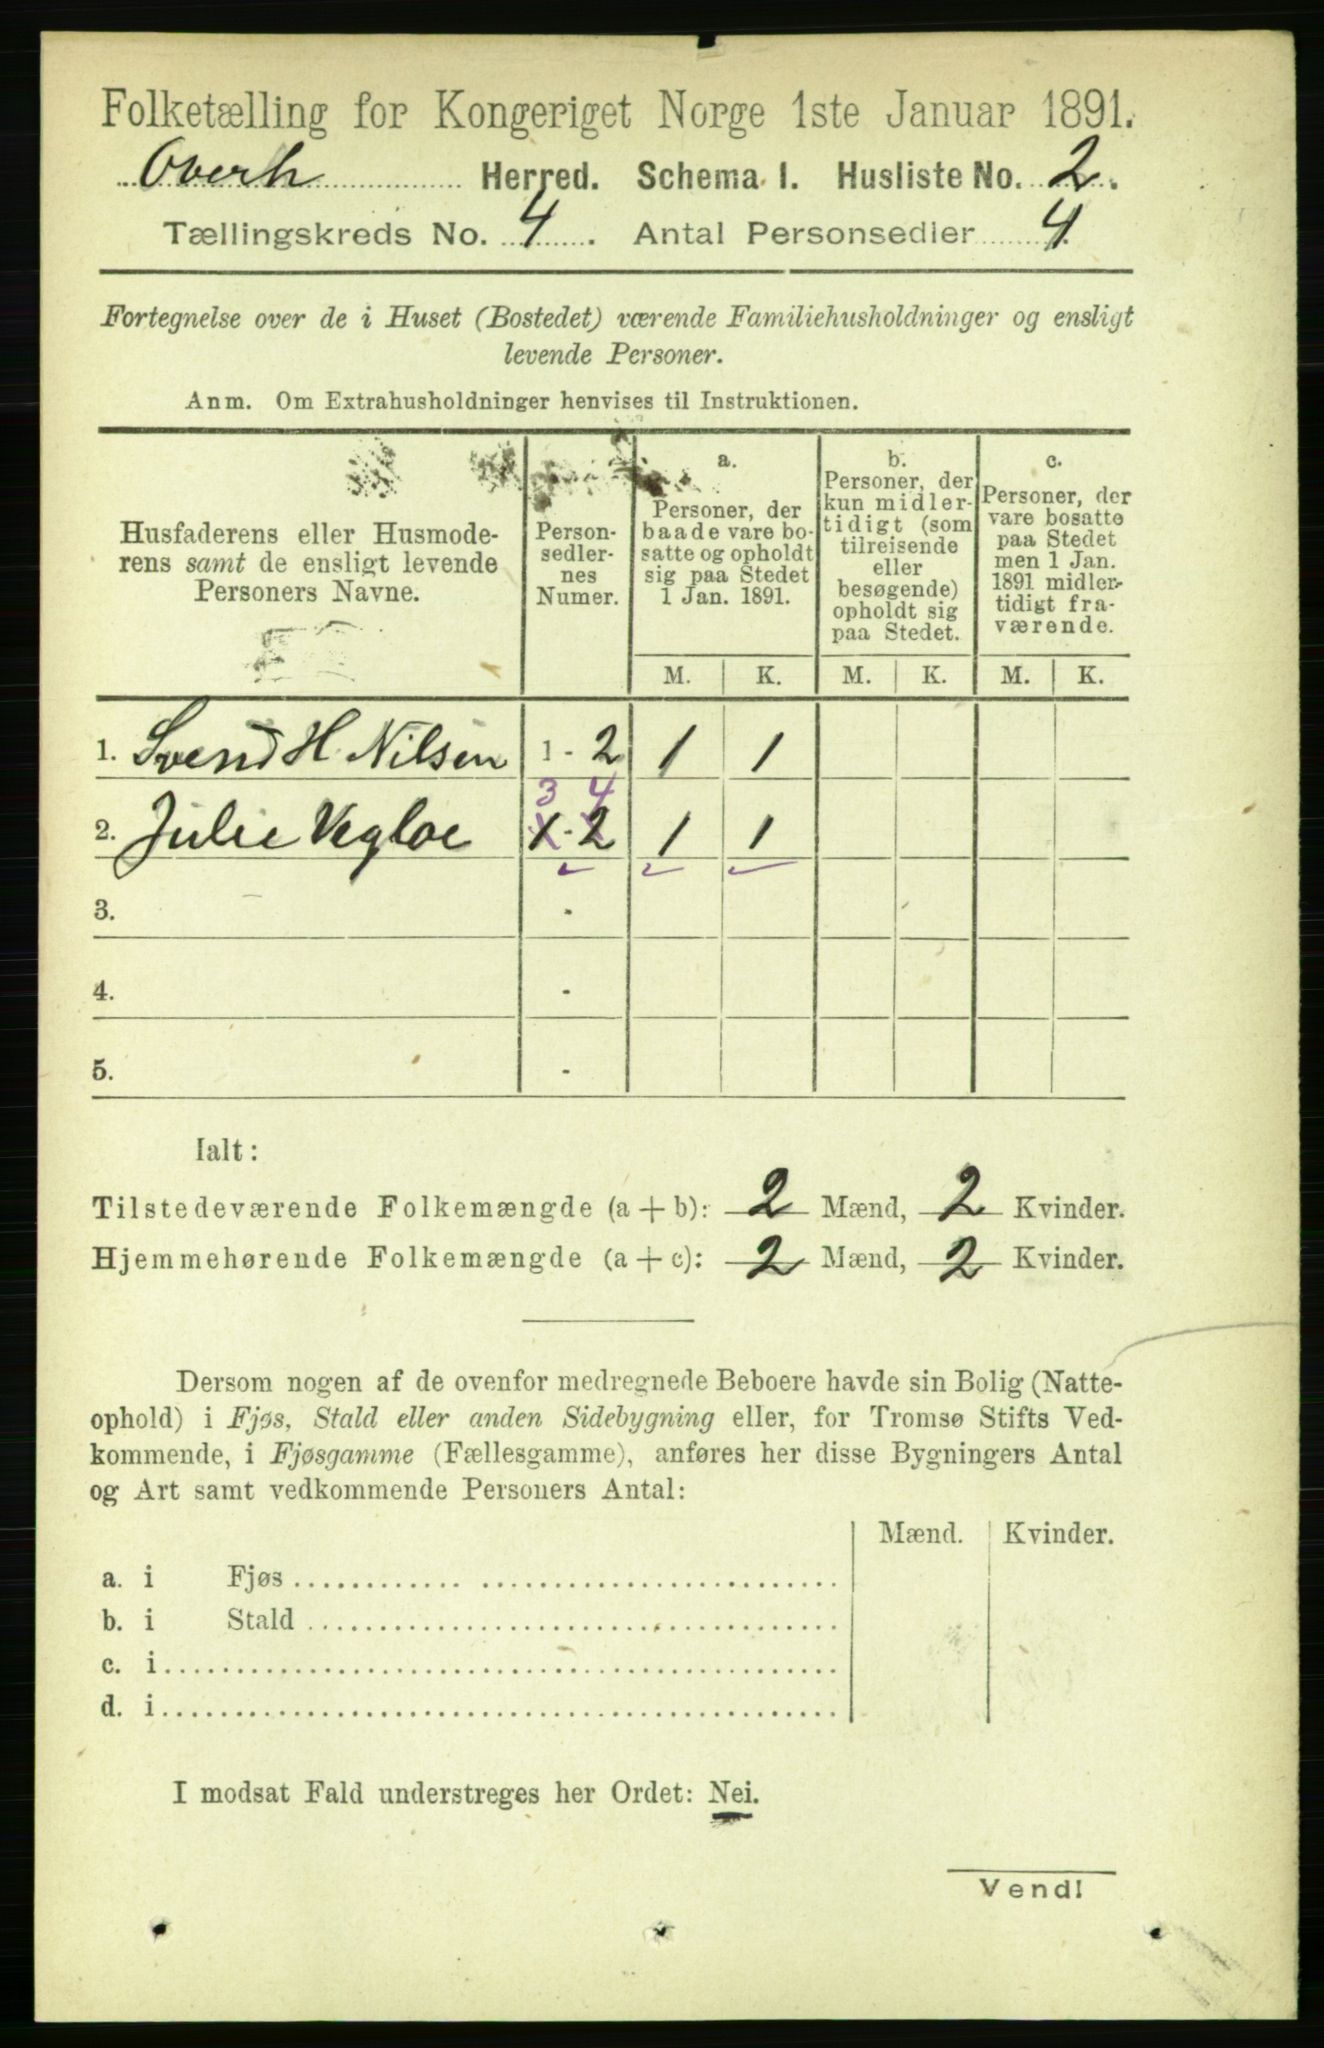 Folketælling for Kongeriget Norge 1ste Januar 1891.
Overh Herred. Schema I. Husliste No. 2.
Tællingskreds No. 4. Antal Personsedler 4.
Fortegnelse over de i Huset (Bostedet) værende Familiehusholdninger og ensligt
levende Personer.
Anm. Om Extrahusholdninger henvises til Instruktionen.
Husfaderens eller Husmode-
rens samt de ensligt levende
Personers Navne.
Person-
sedler-
nes
Numer.
a.
Personer, der
baade vare bo-
satte og opholdt
sig paa Stedet
1 Jan. 1891.
b.
Personer, der
kun midler-
tidigt (som
tilreisende
eller
besøgende)
opholdt sig
paa Stedet.
c.
Personer, der
vare bosatte
paa Stedet
men 1 Jan.
1891 midler-
tidigt fra-
værende.
M. K. M. K. M. K.
1. Svend H. Nilsen 1 - 2 1 1
3 4
2. Julie Vegloe 1 - 2 1 1
3. -
4. -
5. -
Ialt:
Tilstedeværende Folkemængde (a + b): 2 Mænd, 2 Kvinder.
Hjemmehørende Folkemængde (a + c): 2 Mænd, 2 Kvinder.
Dersom nogen af de ovenfor medregnede Beboere havde sin Bolig (Natte-
ophold) i Fjøs, Stald eller anden Sidebygning eller, for Tromsø Stifts Ved-
kommende, i Fjøsgamme (Fællesgamme), anføres her disse Bygningers Antal
og Art samt vedkommende Personers Antal:
Mænd. Kvinder.
a. i Fjøs
b. i Stald
c. i
d. i
I modsat Fald understreges her Ordet: Nei.
Vend!